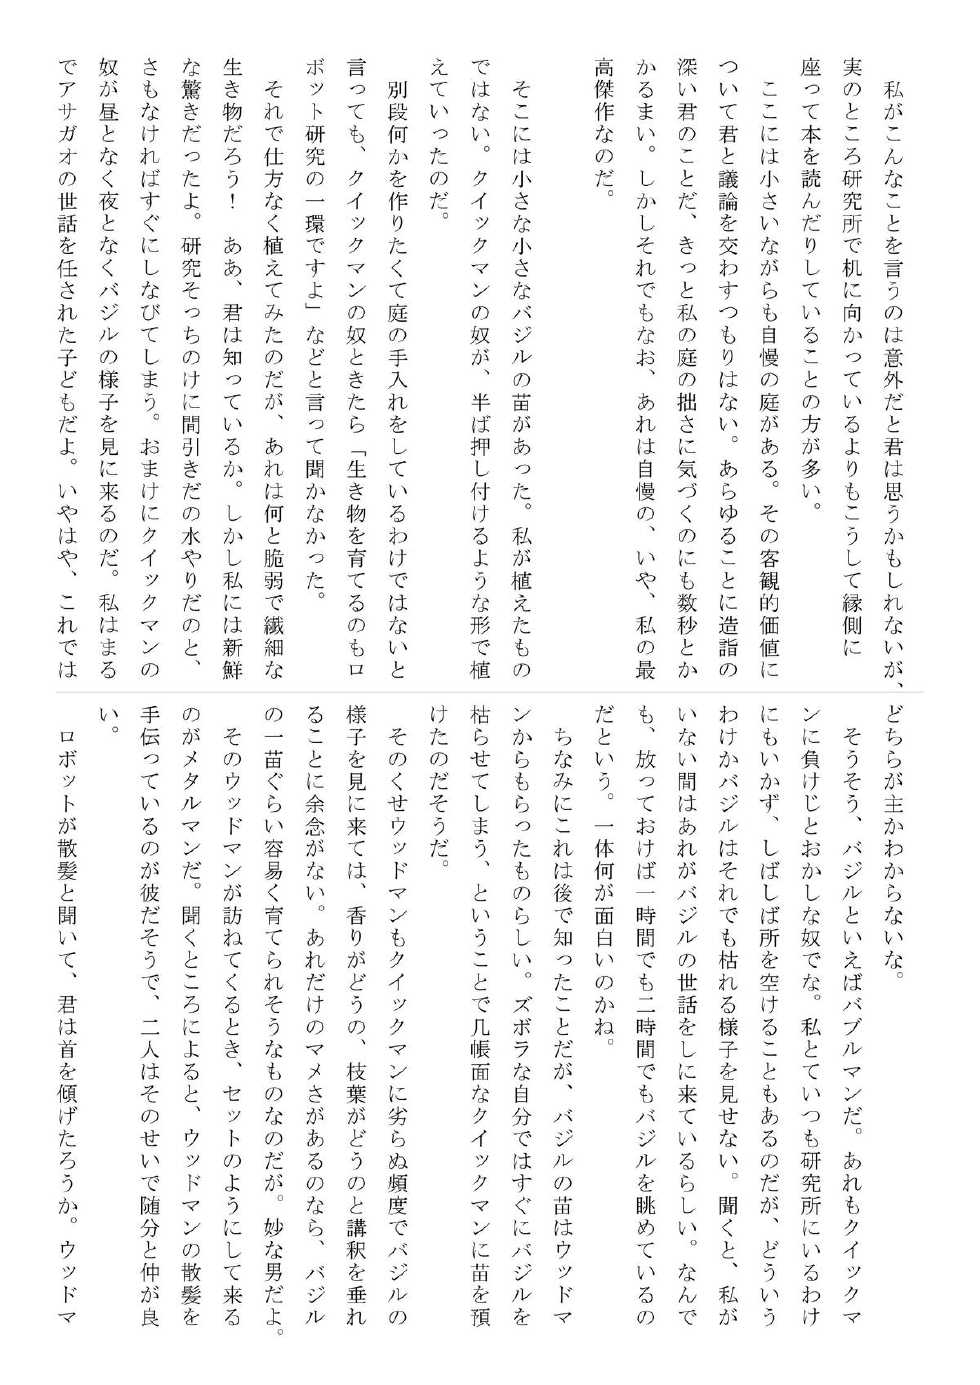 私がこんなことを言うのは意外だと君は思うかもしれないが、
実のところ研究所で机に向かっているよりもこうして縁側に
座って本を読んだりしていることの方が多い。
　ここには小さいながらも自慢の庭がある。その客観的価値に
ついて君と議論を交わすつもりはない。あらゆることに造詣の
深い君のことだ、きっと私の庭の拙さに気づくのにも数秒とか
かるまい。しかしそれでもなお、あれは自慢の、いや、私の最
高傑作なのだ。
　そこには小さな小さなバジルの苗があった。私が植えたもの
ではない。クイックマンの奴が、半ば押し付けるような形で植
えていったのだ。
　別段何かを作りたくて庭の手入れをしているわけではないと
言っても、クイックマンの奴ときたら「生き物を育てるのもロ
ボット研究の一環ですよ」などと言って聞かなかった。
　それで仕方なく植えてみたのだが、あれは何と脆弱で繊細な
生き物だろう！　ああ、君は知っているか。しかし私には新鮮
な驚きだったよ。研究そっちのけに間引きだの水やりだのと、
さもなければすぐにしなびてしまう。おまけにクイックマンの
奴が昼となく夜となくバジルの様子を見に来るのだ。私はまる
でアサガオの世話を任された子どもだよ。いやはや、これでは
どちらが主かわからないな。
　そうそう、バジルといえばバブルマンだ。あれもクイックマ
ンに負けじとおかしな奴でな。私とていつも研究所にいるわけ
にもいかず、しばしば所を空けることもあるのだが、どういう
わけかバジルはそれでも枯れる様子を見せない。聞くと、私が
いない間はあれがバジルの世話をしに来ているらしい。なんで
も、放っておけば一時間でも二時間でもバジルを眺めているの
だという。一体何が面白いのかね。
　ちなみにこれは後で知ったことだが、バジルの苗はウッドマ
ンからもらったものらしい。ズボラな自分ではすぐにバジルを
枯らせてしまう、ということで几帳面なクイックマンに苗を預
けたのだそうだ。
　そのくせウッドマンもクイックマンに劣らぬ頻度でバジルの
様子を見に来ては、香りがどうの、枝葉がどうのと講釈を垂れ
ることに余念がない。あれだけのマメさがあるのなら、バジル
の一苗ぐらい容易く育てられそうなものなのだが。妙な男だよ。
　そのウッドマンが訪ねてくるとき、セットのようにして来る
のがメタルマンだ。聞くところによると、ウッドマンの散髪を
手伝っているのが彼だそうで、二人はそのせいで随分と仲が良
い。
　ロボットが散髪と聞いて、君は首を傾げたろうか。ウッドマ